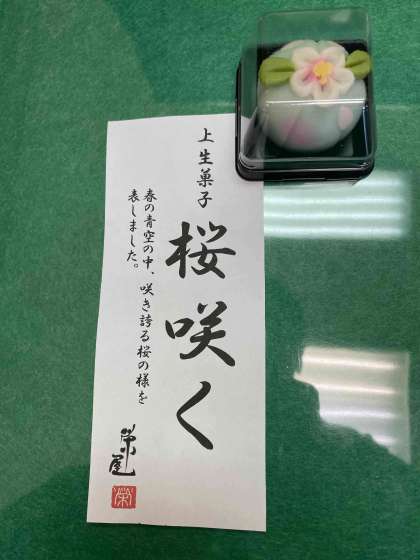 上生菓子
桜咲く
春の青空の中、咲き誇る桜の様を
表しました。
栄屋
栄